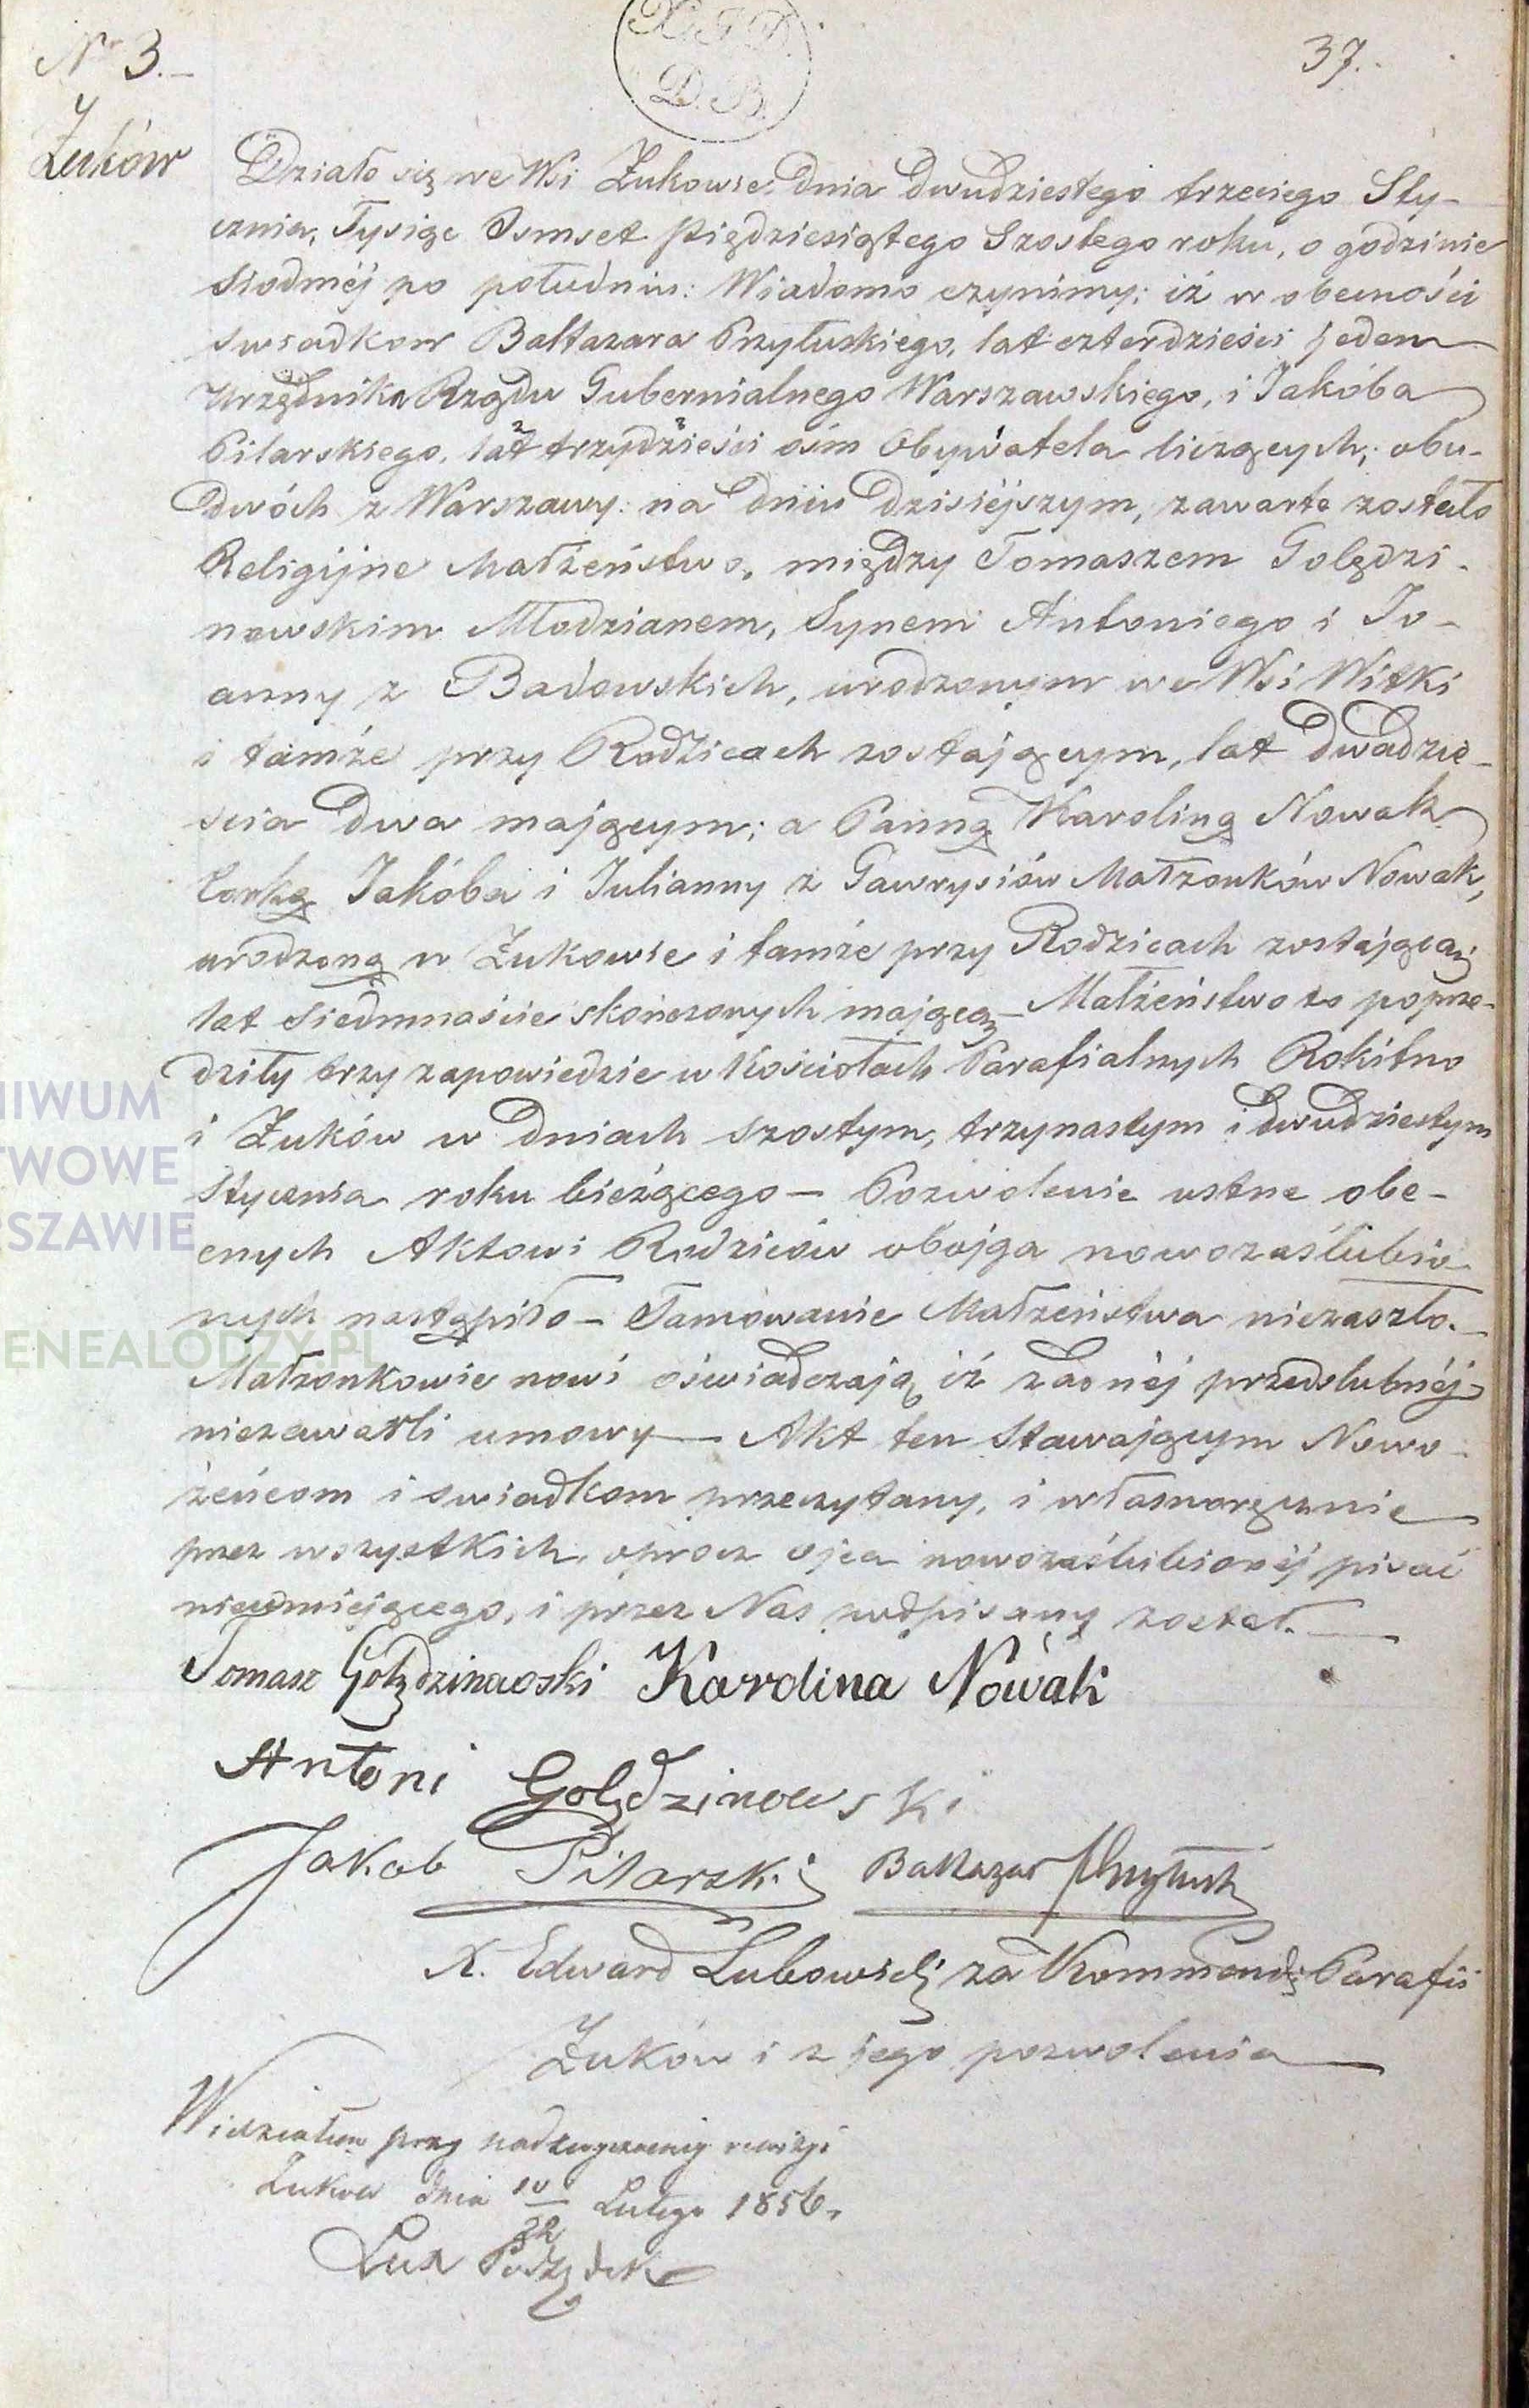 Nr 3.-
37.
X. J. D.
D. B.
Żuków
Działo się we Wsi Żukowie, dnia dwudziestego trzeciego Sty-
cznia, Tysiąc Osmset Piędziesiątego Szostego roku, o godzinie
Siodméj po południu: Wiadomo czynimy; iż w obecności
swiadkow Baltazara Przyłuskiego, lat czterdzieści jeden
Urzędnika Rządu Gubernialnego Warszawskiego, i Jakóba
Pilarskiego, lat trzydzieści ośm Obywatela liczących; obu-
dwóch z Warszawy: na dniu dzisiéjszym, zawarte zostało
Religijne Małżeństwo, między Tomaszem Golędzi-
nowskim Młodzianem, Synem Antoniego i Jo-
anny z Badowskich, urodzonym we Wsi Witki
i tamże przy Rodzicach zostającym, lat dwadzie-
scia dwa mającym; a Panną Karoliną Nowak
Corką Jakóba i Julianny z Gawrysiów Małżonków Nowak,
urodzoną w Żukowie i tamże przy Rodzicach zostającą
lat Siedmnaście skończonych mającą - Małżeństwo to poprze-
dziły trzy zapowiedzie w Kościołach Parafialnych Rokitno
i Żuków w dniach szostym, trzynastym i dwudziestym
Stycznia roku bieżącego - Pozwolenie ustne obe-
cnych Aktowi Rodziców obojga nowozaślubio-
nych nastąpiło - Tamowanie Małżeństwa niezaszło.-
Małżonkowie nowi oświadczają iż żadnéj przedslubnéj
niezawarli umowy - Akt ten Stawającym Nowo-
żeńcom i swiadkom przeczytany, i własnoręcznie
przez wszystkich, oprocz ojca nowozaślubionéj pisać
nieumiejącego, i przez Nas podpisany został.-
Tomasz Golędzinowski Karolina Nowak
Antoni Golędzinowski
Jakob Pilarski Baltazar Przyłuski
X. Edward Lubowidzki za Kommendę Parafii
Żuków i z jego pozwolenia
Widziałem przy nadzwyczajnéj rewizyi
Żukow dnia 10/22 Lutego 1856.